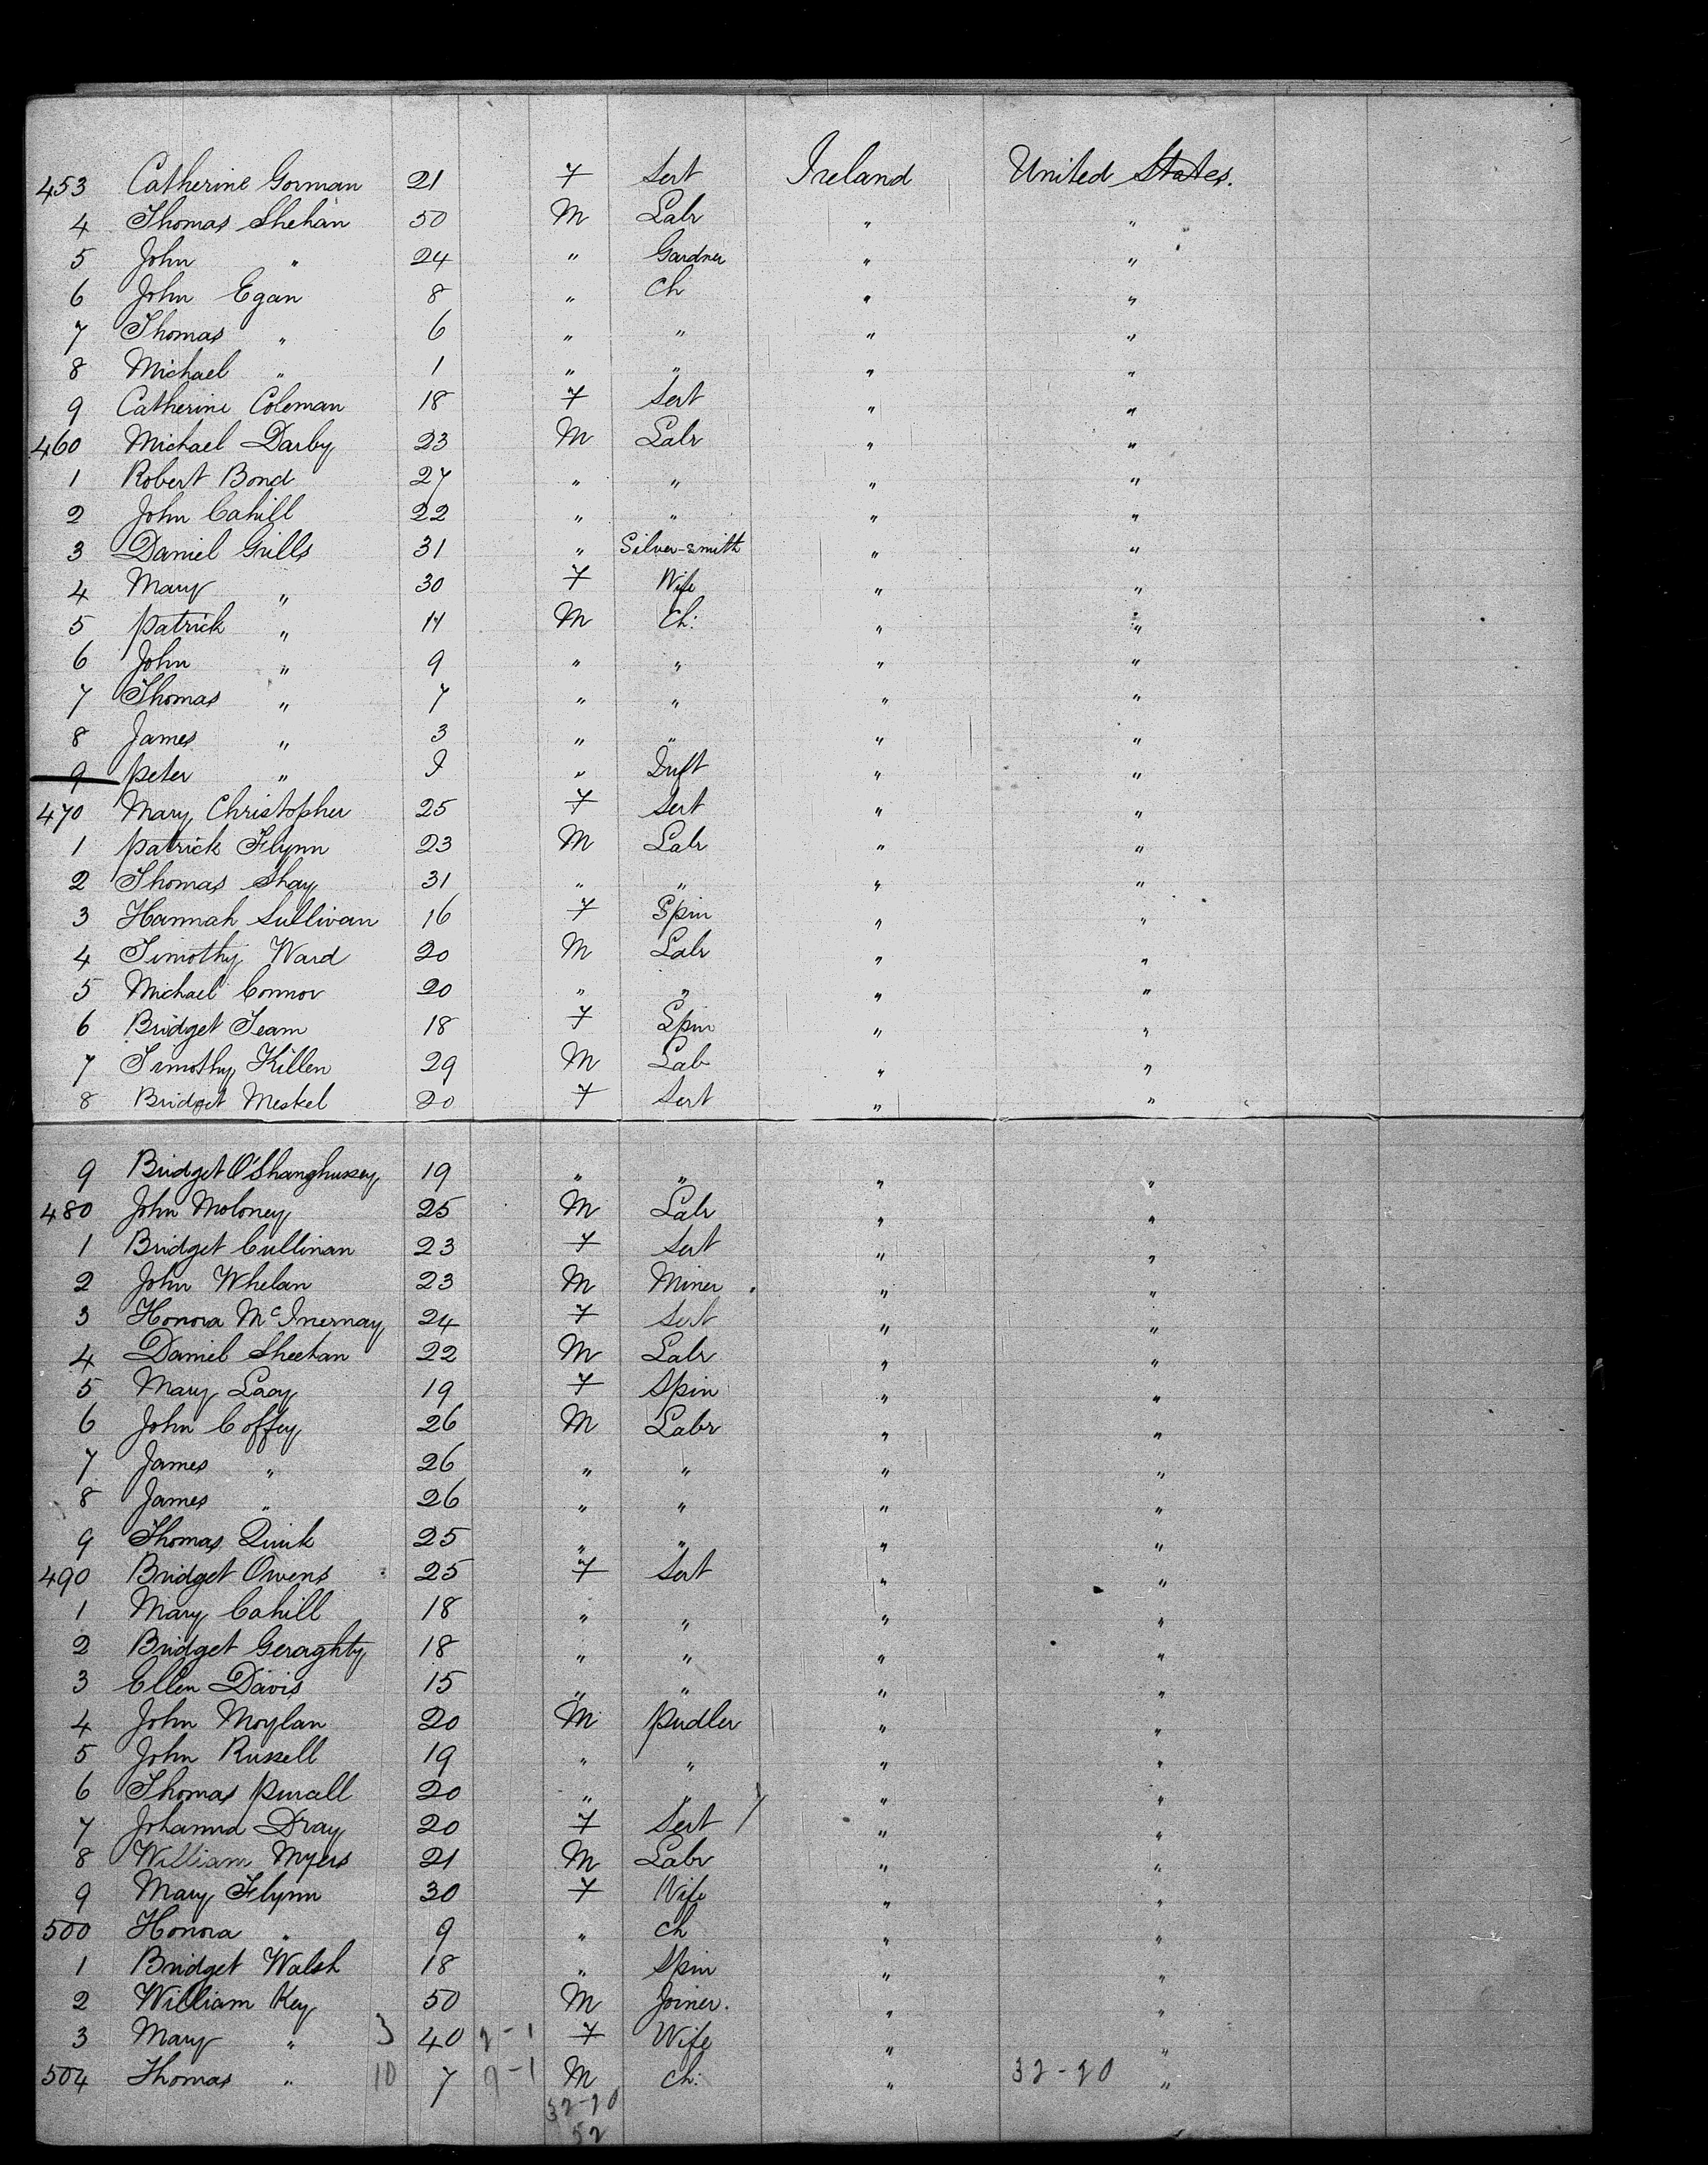 453 Catherine Gorman 21 F Sert Ireland United States.
4 Thomas Shehan 50 M Labr " "
5 John " 24 " Gardner " "
6 John Egan 8 " Ch " "
7 Thomas " 6 " " " "
8 Michael " 1 " " " "
9 Catherine Coleman 18 F Sert " "
460 Michael Darby 23 M Labr " "
1 Robert Bond 27 " " " "
2 John Cahill 22 " " " "
3 Daniel Grills 31 " Silver-smith " "
4 Mary " 30 F Wife " "
5 Patrick " 11 M Ch: " "
6 John " 9 " " " "
7 Thomas " 7 " " " "
8 James " 3 " " " "
9 Peter " " " "
470 Mary Christopher 25 F Sert " "
1 Patrick Flynn 23 M Labr " "
2 Thomas Shay 31 " " " "
3 Hannah Sullivan 16 F Spin " "
4 Timothy Ward 20 M Labr " "
5 Michael Connor 20 " " " "
6 Bridget Team 18 F Spin " "
7 Timothy Killen 29 M Lab " "
8 Bridget Meskel 20 F Sert " "
9 Bridget O'Shanghusey 19 " " " "
480 John Moloney 25 M Labr " "
1 Bridget Cullinan 23 F Sert " "
2 John Whelan 23 M Miner " "
3 Honora McInernay 24 F Sert " "
4 Daniel Sheehan 22 M Labr " "
5 Mary Lacy 19 F Spin " "
6 John Coffey 26 M Labr " "
7 James " 26 " " " "
8 James " 26 " " " "
9 Thomas Quirk 25 " " " "
490 Bridget Owens 25 F Sert " "
1 Mary Cahill 18 " " " "
2 Bridget Geraghty 18 " " " "
3 Ellen Davis 15 " " " "
4 John Moylan 20 M Pudler " "
5 John Russell 19 " " " "
6 Thomas Purcall 20 " " " "
7 Johanna Dray 20 F Sert " "
8 William Myers 21 M Labr " "
9 Mary Flynn 30 F Wife " "
500 Honora " 9 " Ch " "
1 Bridget Walsh 18 " Spin " "
2 William Key 50 M Joiner. " "
3 Mary " 3 40 2-1 F Wife " "
504 Thomas " 10 7 9-1 M Ch: " 32-20 "
32-20
52